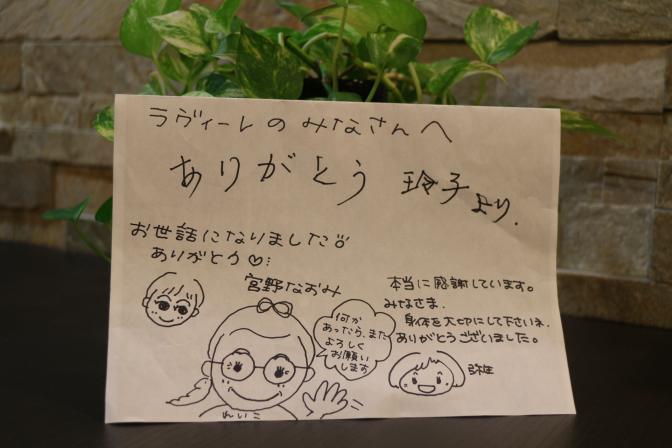 ラヴィーレのみなさんへ
ありがとう 玲子より.
お世話になりました
ありがとう♡
宮野なおみ
何か
あったら、また
よろしく
お願い
します
れいこ
本当に感謝しています。
みなさま、
身体を大切にして下さいネ
ありがとうございました。